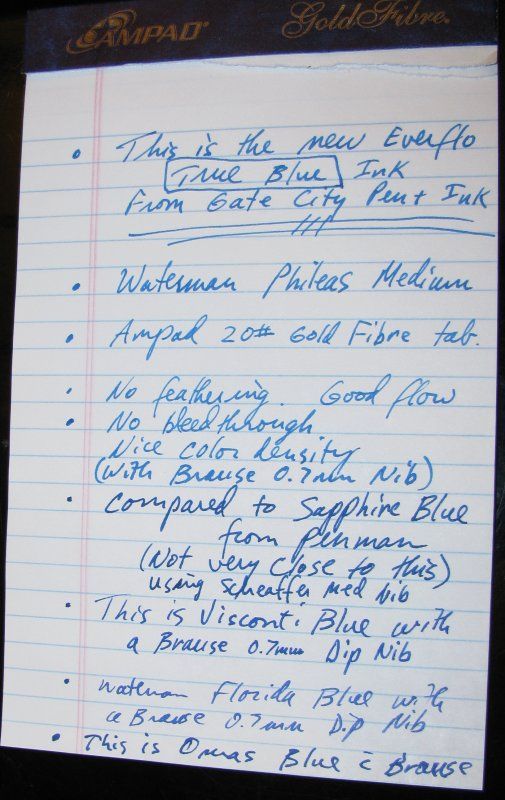 AMPAD® Gold Fibre.
• This is the new Everflo
True Blue Ink
From Gate City Pen + Ink
• Waterman Phileas Medium
• Ampad 20# Gold Fibre tab.
• No feathering. Good flow
• No bleedthrough
Nice color density
(with Brause 0.7mm Nib)
• Compared to Sapphire Blue
from penman
(Not very close to this)
using Scheaffer med nib
• This is Visconti Blue with
a Brause 0.7mm Dip Nib
• waterman Florida Blue with
a Brause 0.7mm Dip Nib
• This is Omas Blue c̄ Brause